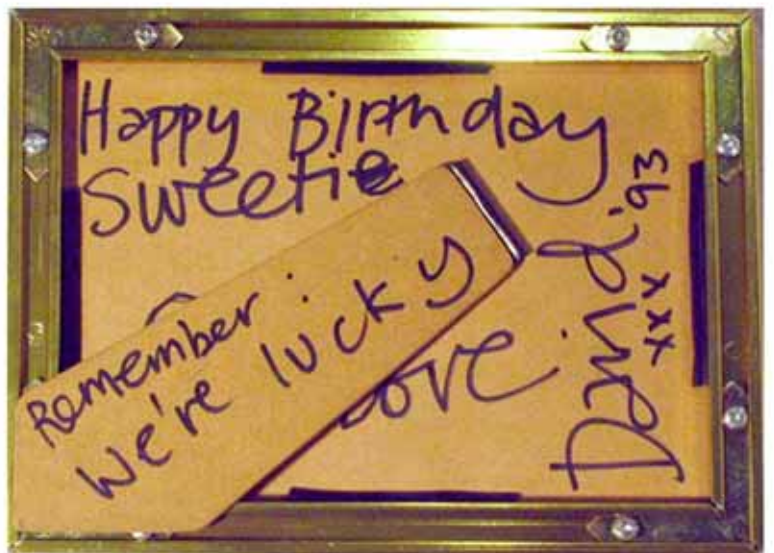 Happy Birthday
Sweetie
Remember:
We're lucky
Love
David '93
xxx